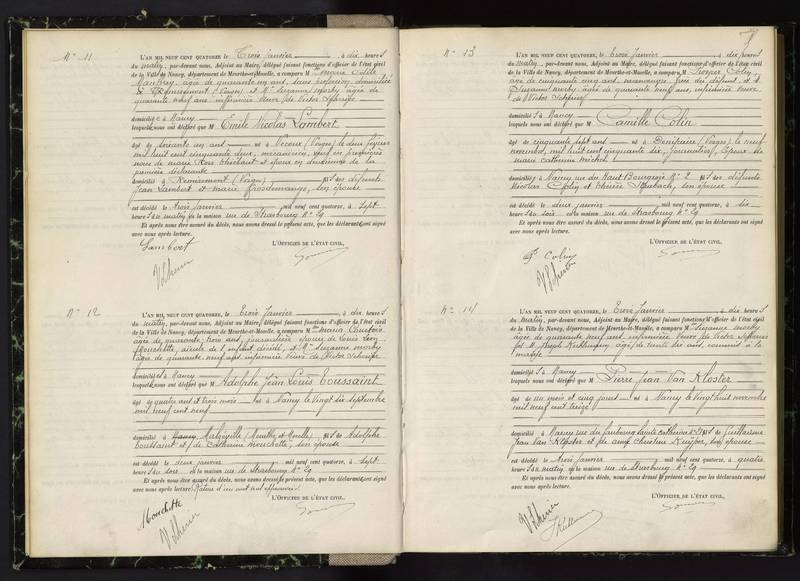 N° 11
L'AN MIL NEUF CENT QUATORZE, le Trois janvier, à dix heures
du matin, par-devant nous, Adjoint au Maire, délégué faisant fonctions d'officier de l'état civil
de la Ville de Nancy, département de Meurthe-et-Moselle, a comparu M
âgée de quarante un ans, sans profession, domiciliée
à Remiremont (Vosges) et Me Suzanne âgée de
quarante neuf ans, infirmière veuve de Victor
domiciliée à Nancy
lesquels nous ont déclaré que M Emile Nicolas Lambert
âgé de soixante un ans né à Vecoux (Vosges) le deux février
mil huit cent cinquante deux, mécanicien, veuf en premières
noces de marie Rose et époux en deuxièmes de la
première déclarante
domicilié à Remiremont (Vosges) fils des défunts
Jean Lambert et marie Grosdemange, son épouse
est décédé le trois janvier mil neuf cent quatorze, à sept
heures du matin en la maison rue de Strasbourg N°
Et après nous être assuré du décès, nous avons dressé le présent acte, que les déclarants ont signé
avec nous après lecture.
L'OFFICIER DE L'ÉTAT CIVIL,
Lambert
N° 12
L'AN MIL NEUF CENT QUATORZE, le Trois janvier, à dix heures
du matin, par-devant nous, Adjoint au Maire, délégué faisant fonctions d'officier de l'état civil
de la Ville de Nancy, département de Meurthe-et-Moselle, a comparu Mme maria
âgée de quarante trois ans, journalière épouse de Louis Léon
Mouchette, aïeule de l'enfant décédé, et Me Suzanne
âgée de quarante neuf ans infirmière veuve de Victor
domiciliées à Nancy
lesquels nous ont déclaré que M Adolphe Jean Louis Toussaint
âgé de quatre ans et trois mois né à Nancy le vingt six septembre
mil neuf cent neuf
domicilié à Nancy Malzéville (Meurthe et Moselle) fils de Adolphe
Toussaint et de Catherine Mouchette, son épouse
est décédé le deux janvier mil neuf cent quatorze, à sept
heures du soir en la maison rue de Strasbourg N°
Et après nous être assuré du décès, nous avons dressé le présent acte, que les déclarants ont signé
avec nous après lecture. Rature d'un mot nul approuvée
L'OFFICIER DE L'ÉTAT CIVIL,
Mouchette
N° 13
L'AN MIL NEUF CENT QUATORZE, le Trois janvier, à dix heures
du matin, par-devant nous, Adjoint au Maire, délégué faisant fonctions d'officier de l'état civil
de la Ville de Nancy, département de Meurthe-et-Moselle, a comparu M Prosper Colin
âgé de cinquante cinq ans, manœuvre, frère du défunt, et Me
Suzanne âgée de quarante neuf ans, infirmière veuve
de Victor
domiciliés à Nancy
lesquels nous ont déclaré que M Camille Colin
âgé de cinquante sept ans né à Denipaire (Vosges) le neuf
novembre mil huit cent cinquante six, journalier, époux de
marie catherine michel
domicilié à Nancy rue du Haut Bourgeois N° 2 fils des défunts
Nicolas Colin et son épouse
est décédé le deux janvier mil neuf cent quatorze, à dix
heures du soir en la maison rue de Strasbourg N°
Et après nous être assuré du décès, nous avons dressé le présent acte, que les déclarants ont signé
avec nous après lecture.
L'OFFICIER DE L'ÉTAT CIVIL,
P. Colin
N° 14
L'AN MIL NEUF CENT QUATORZE, le Trois janvier, à dix heures
du matin, par-devant nous, Adjoint au Maire, délégué faisant fonctions d'officier de l'état civil
de la Ville de Nancy, département de Meurthe-et-Moselle, a comparu Me Suzanne
âgée de quarante neuf ans, infirmière veuve de Victor
et M Joseph âgé de trente six ans, employé à la
mairie
domiciliés à Nancy
lesquels nous ont déclaré que M Pierre Jean Van Kloster
âgé de un mois et cinq jours né à Nancy le vingt huit novembre
mil neuf cent treize
domicilié à Nancy rue du faubourg Sainte Catherine fils de Guillaume
Jean Van Kloster et de Christine son épouse
est décédé le trois janvier mil neuf cent quatorze, à quatre
heures du matin en la maison rue de Strasbourg N°
Et après nous être assuré du décès, nous avons dressé le présent acte, que les déclarants ont signé
avec nous après lecture.
L'OFFICIER DE L'ÉTAT CIVIL,